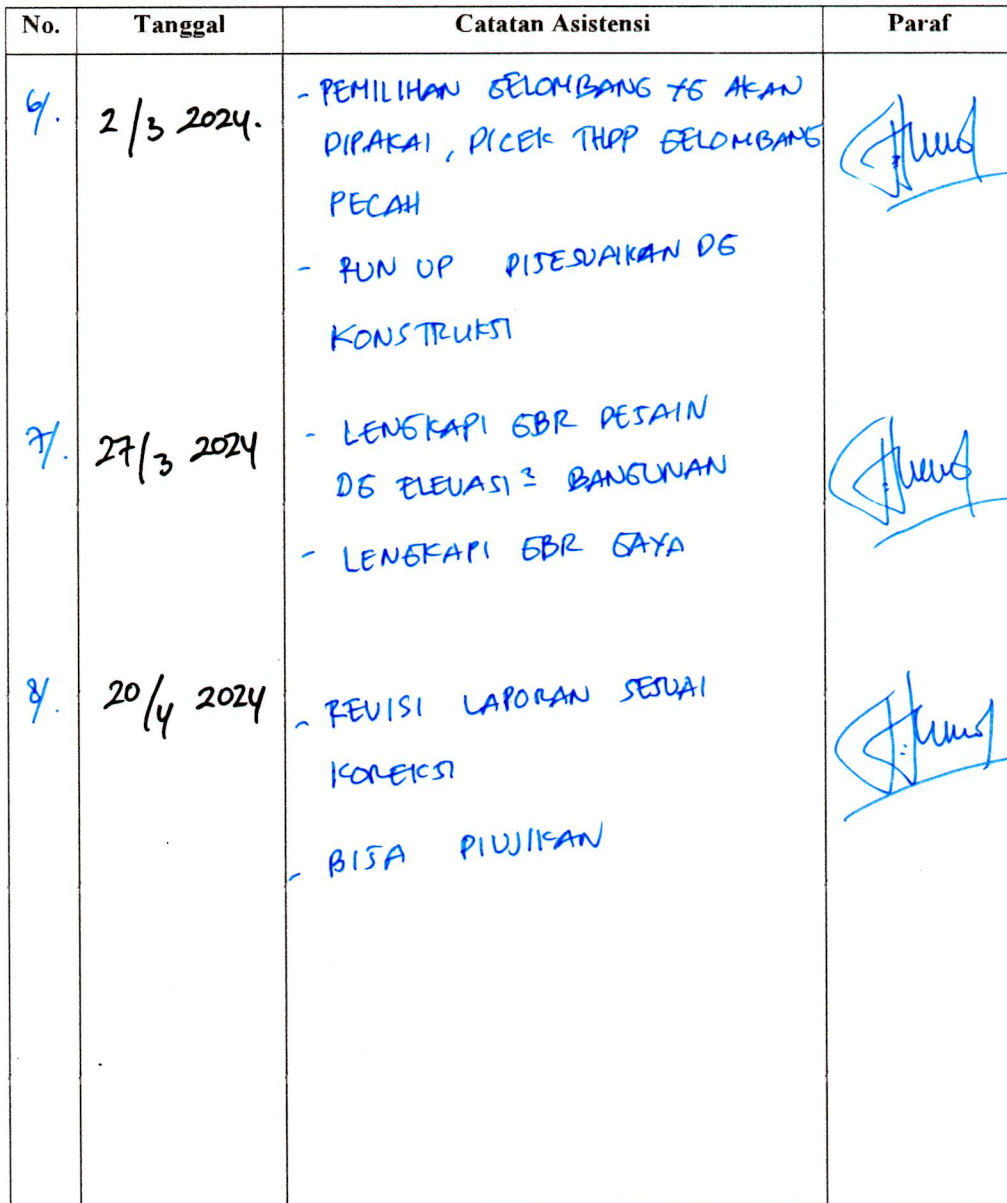 No. Tanggal Catatan Asistensi Paraf
6/. 2/3 2024. - PEMILIHAN GELOMBANG YG AKAN
DIPAKAI, DICEK THDP GELOMBANG
PECAH
- RUN UP DISESUAIKAN DG
KONSTRUKSI
7/. 27/3 2024 - LENGKAPI GBR DESAIN
DG ELEVASI² BANGUNAN
- LENGKAPI GBR GAYA
8/. 20/4 2024 - REVISI LAPORAN SESUAI
KOREKSI
- BISA DIUJIKAN